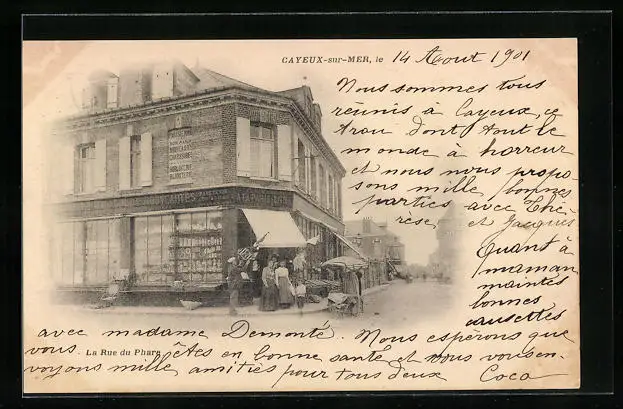 CAYEUX-sur-MER, le 14 Aout 1901
Nous sommes tous
réunis à Cayeux, ce
trou dont tout le
monde à horreur
et nous nous propo
sons mille bonnes
parties avec Thé
rèse et Jacques
Quant à
maman
maintes
bonnes
causettes
avec madame Demonté. Nous esperons que
vous êtes en bonne santé et nous vous en-
La Rue du Phare
voyons mille amitiés pour tous deux Coco
NOUVEAUTÉS
NOUVEAUTÉS
CHAUSSURE
HORLOGERIE
BIJOUTERIE